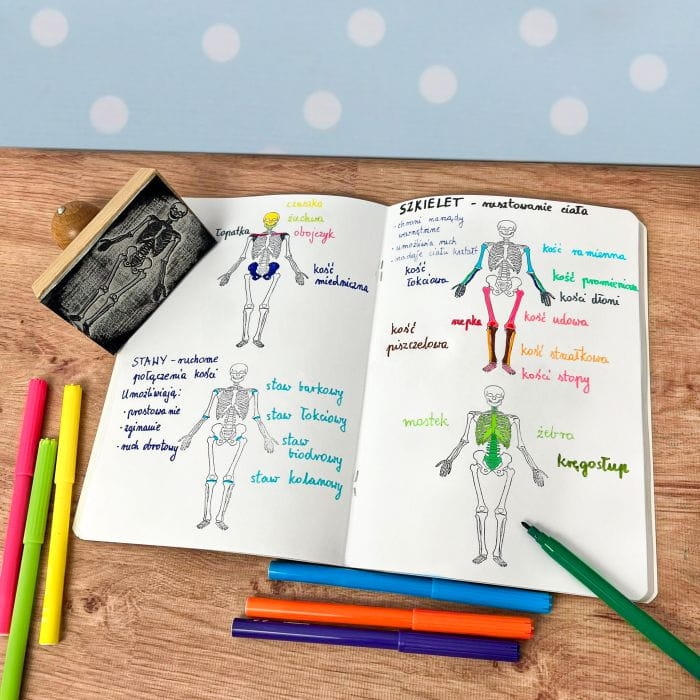 czaszka
żuchwa
łopatka
obojczyk
kość
miedniczna
STAWY - ruchome
połączenia kości
Umożliwiają:
• prostowanie
• zginanie
• ruch obrotowy
staw barkowy
staw łokciowy
staw
biodrowy
staw kolanowy
SZKIELET - rusztowanie ciała
• chroni narządy
wewnętrzne
• umożliwia ruch
• nadaje ciału kształt
kość
łokciowa
kość ramienna
kość promieniowa
kości dłoni
rzepka
kość udowa
kość
piszczelowa
kość strzałkowa
kości stopy
mostek
żebra
kręgosłup